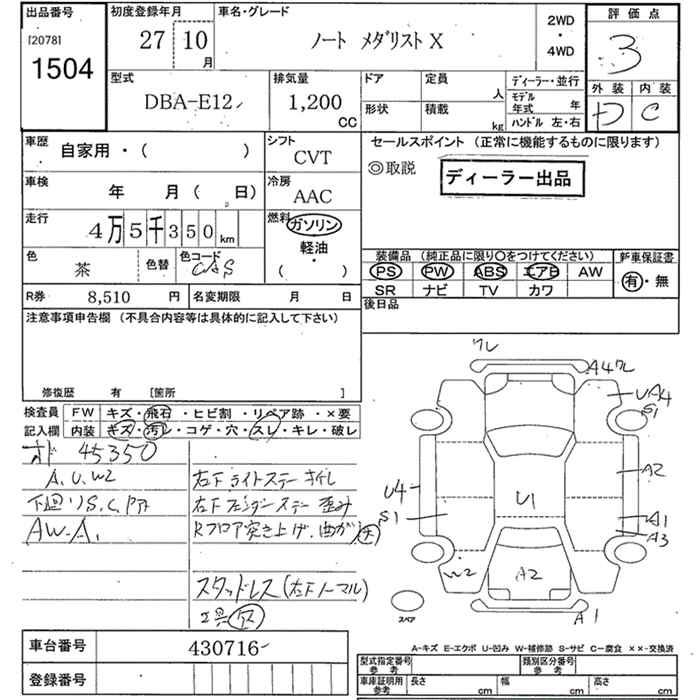 出品番号
[2078]
1504
初度登録年月
27年 10月
車名・グレード
ノート メダリスト X
2WD
・
4WD
評価点
3
外装 内装
D C
型式
DBA-E12
排気量
1,200
CC
ドア
定員
人
形状
積載
kg
ディーラー・並行
モデル年式 年
ハンドル 左・右
車歴
自家用・( )
シフト
CVT
車検
年 月( 日)
冷房
AAC
走行
4万5千350km
燃料
ガソリン
軽油・
( )
色
茶
色替
色コード
CAS
R券 8,510 円
名変期限 月 日
セールスポイント (正常に機能するものに限ります)
◎取説
ディーラー出品
装備品 (純正品に限り○をつけてください)
PS PW ABS エアB AW
SR ナビ TV カワ
新車保証書
有・無
後日品
注意事項申告欄 (不具合内容等は具体的に記入して下さい)
修復歴 有 [箇所 ]
検査員記入欄
FW キズ・飛石・ヒビ割・リペア跡・×要
内装 キズ・汚レ・コゲ・穴・スレ・キレ・破レ
45350
A.U.W2
下廻りS.C.
AW-A1
右下ライトステー
右下フェンダーステー歪み
Rフロア突き上げ.曲がり
スタッドレス(右下ノーマル)
工具
ワレ
A4ワレ
UA4
S1
A2
U4
S1
U1
A1
A3
W2
A2
A1
スペア
A-キズ E-エクボ U-凹み W-補修跡 S-サビ C-腐食 ××-交換済
車台番号 430716
登録番号
型式指定番号 参考
類別区分番号 参考
車庫証明用 参考
長さ cm
幅 cm
高さ cm